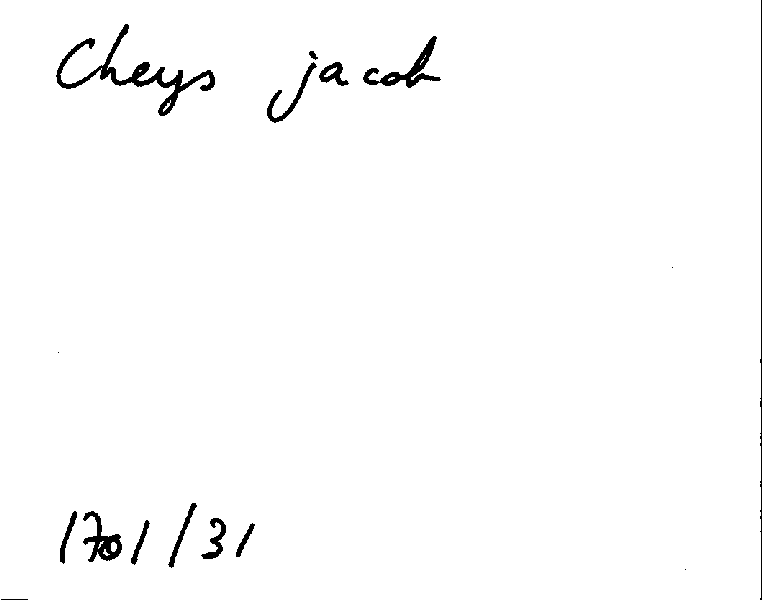 Cheys jacob
1701/31